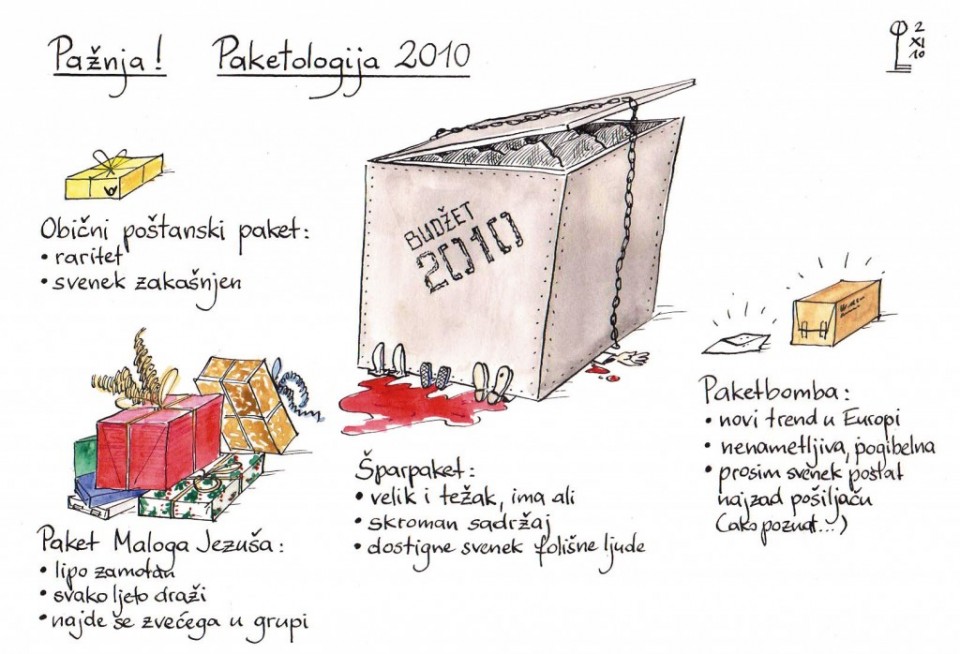 Pažnja! Paketologija 2010
2
XI
10
Obični poštanski paket:
• raritet
• svenek zakašnjen
BUDŽET
2010
Paket Maloga Jezuša:
• lipo zamotan
• svako ljeto draži
• najde se zvećega u grupi
Šparpaket:
• velik i težak, ima ali
• skroman sadržaj
• dostigne svenek folišne ljude
Paketbomba:
• novi trend u Europi
• nenametljiva, pogibelna
• prosim svenek poslat
najzad pošiljaču
(ako poznat...)